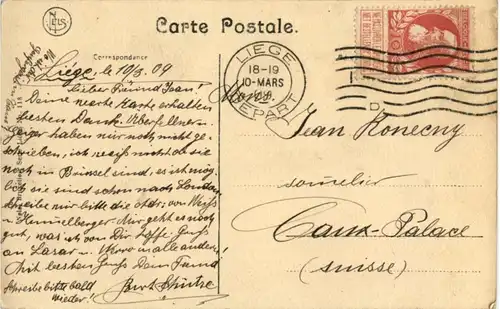 Carte Postale.
NELS
Correspondance
Liége, le 10/3. 09
Lieber Freund Jean!
Deine werte Karte erhalten
besten Dank. Überfellner
Geiger haben mir noch nicht ge-
schrieben, ich weiß nicht ob sie
noch in Brüssel sind, es ist mög-
lich sie sind schon nach London
Schreibe mir bitte die Adr. von Weiss
u. Hummelberger. Mir geht es noch
gut, was ich von Dir hoffe. Gruß
an Lasar u. alle andern!
Mit besten Gruß Dein Freund
Schreibe bitte bald
wieder!
LIEGE
18-19
10-MARS
DEPART
Mons.
Jean Konecny
sommelier
Caux-Palace
(Suisse)